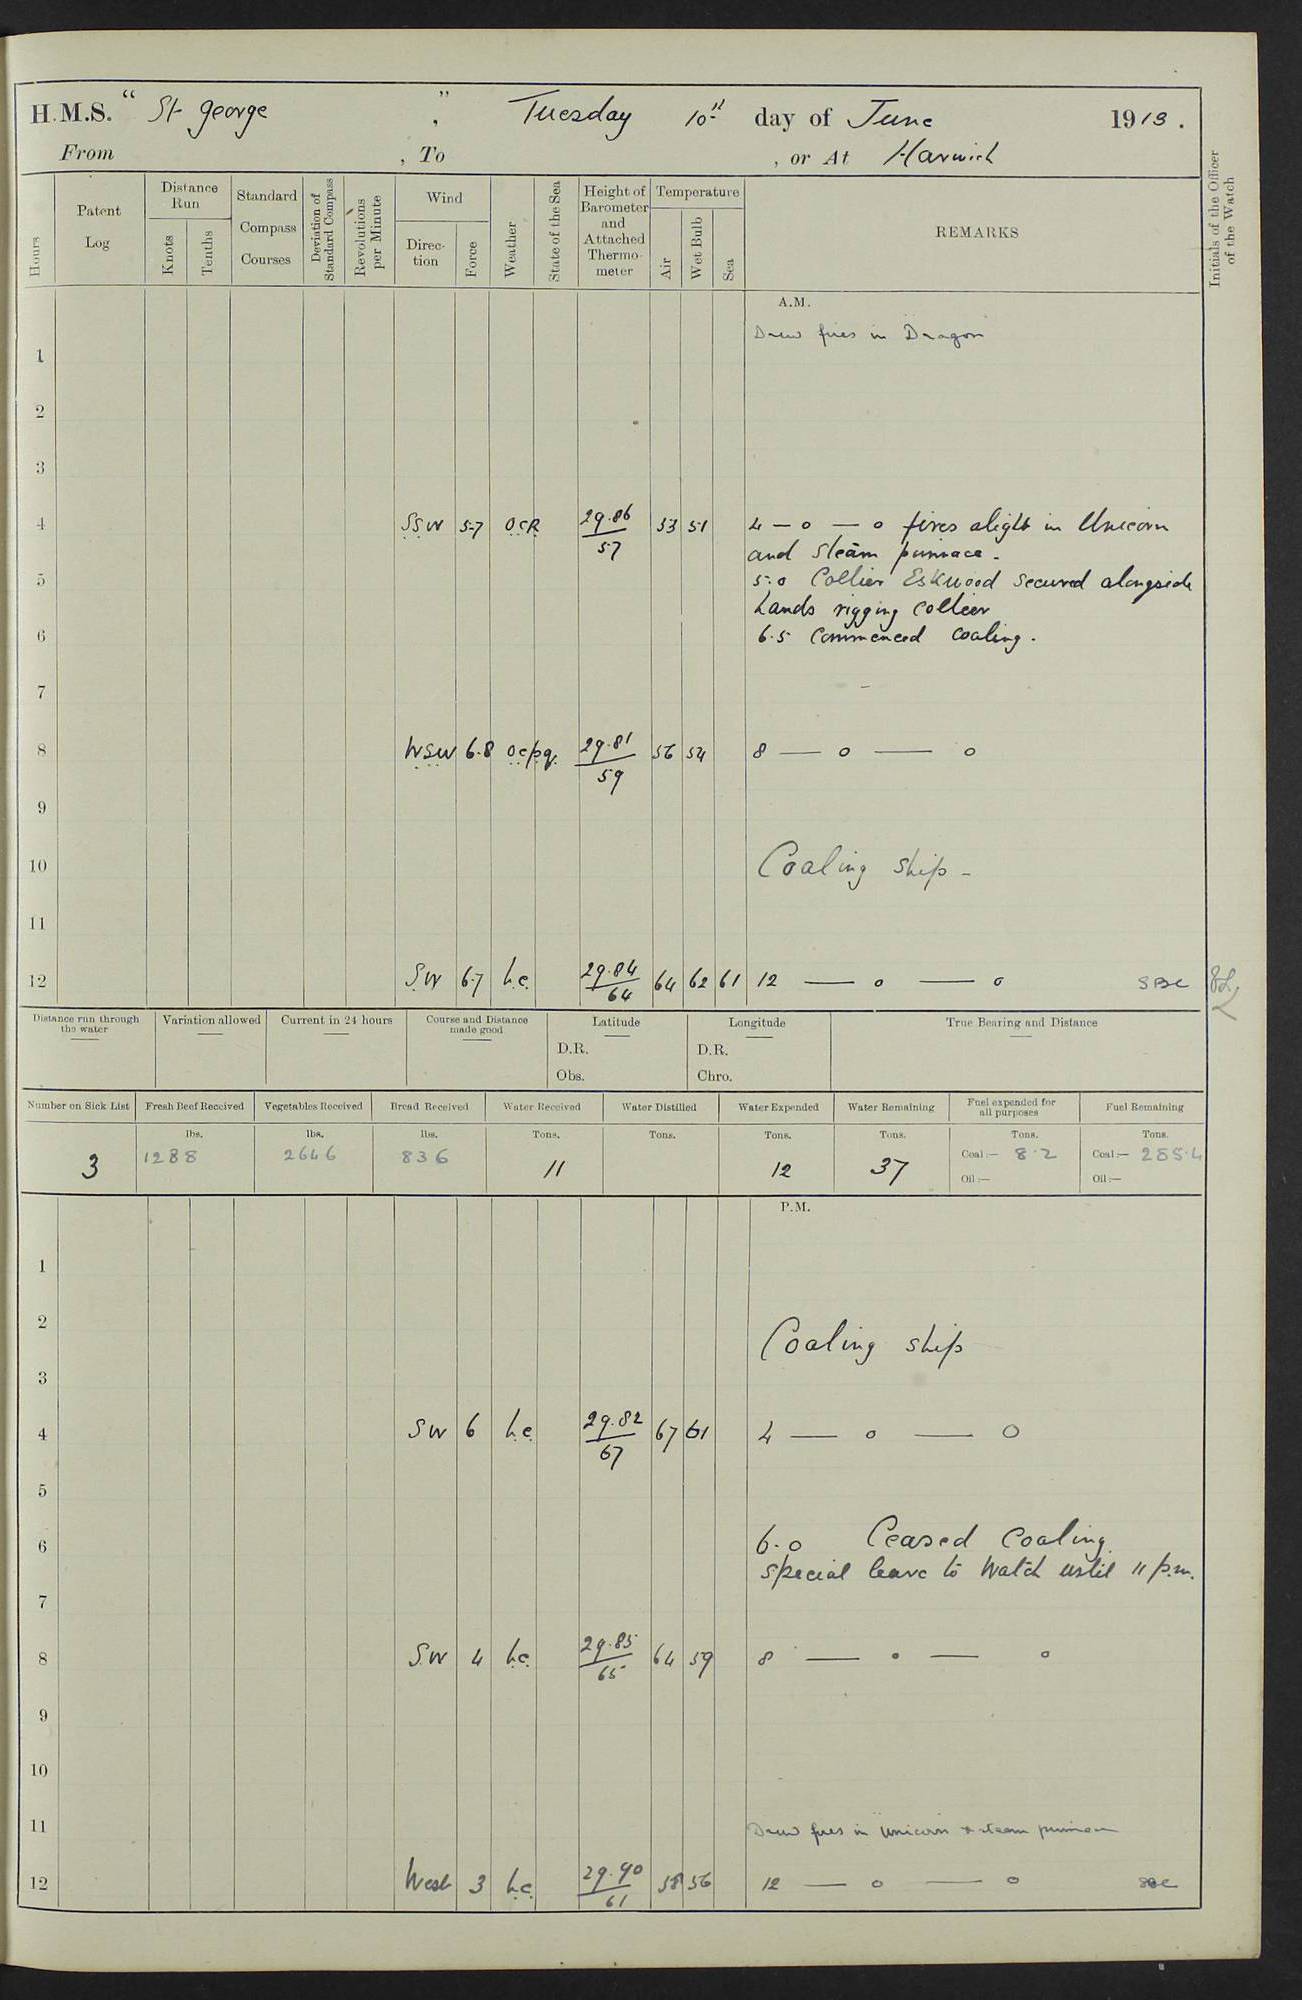 H.M.S. " St George " , Tuesday 10th day of June 1913.
From , To , or At Harwich
Hours
Patent Log
Distance Run
Knots
Tenths
Standard Compass Courses
Deviation of Standard Compass
Revolutions per Minute
Wind
Direction
Force
Weather
State of the Sea
Height of Barometer and Attached Thermometer
Temperature
Air
Wet Bulb
Sea
REMARKS
Initials of the Officer of the Watch
A.M.
Drew fires in Dragon
1
2
3
4 SSW 5-7 OCR 29.86/57 53 51 4 — o — o fires alight in Unicorn
and steam pinnace -
5 5.0 Collier Eskwood secured alongside
hands rigging collier
6 6.5 Commenced coaling.
7
8 WSW 6.8 ocpq. 29.81/59 56 54 8 — o — o
9
10 Coaling ship -
11
12 SW 6-7 b.c. 29.84/64 64 62 61 12 — o — o SBC
Distance run through the water
Variation allowed
Current in 24 hours
Course and Distance made good
Latitude
D.R.
Obs.
Longitude
D.R.
Chro.
True Bearing and Distance
Number on Sick List
Fresh Beef Received
Vegetables Received
Bread Received
Water Received
Water Distilled
Water Expended
Water Remaining
Fuel expended for all purposes
Fuel Remaining
lbs. lbs. lbs. Tons. Tons. Tons. Tons. Tons. Tons.
3 1288 2646 836 11 12 37 Coal:— 8.2 Coal:— 285.4
Oil:— Oil:—
P.M.
1
2 Coaling ship
3
4 SW 6 b.c. 29.82/67 67 61 4 — o — o
5
6 6.0 Ceased Coaling.
special leave to Watch until 11 p.m.
7
8 SW 4 b.c. 29.85/65 64 59 8 — o — o
9
10
11 Drew fires in Unicorn & steam pinnace
12 West 3 b.c. 29.90/61 58 56 12 — o — o SBC